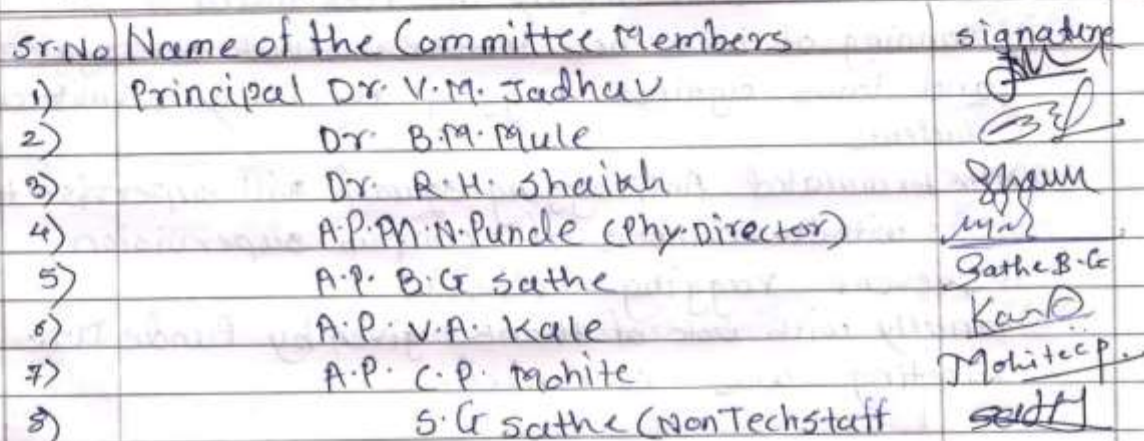 Sr.No Name of the Committee Members signature
1) Principal Dr. V.M. Jadhav
2) Dr. B.M. Mule
3) Dr. R.H. Shaikh
4) A.P. M.N. Punde (Phy. Director)
5) A.P. B.G Sathe Sathe B.G
6) A.P. V.A. Kale
7) A.P. C.P. Mohite Mohite C.P.
8) S.G Sathe (Non Tech staff